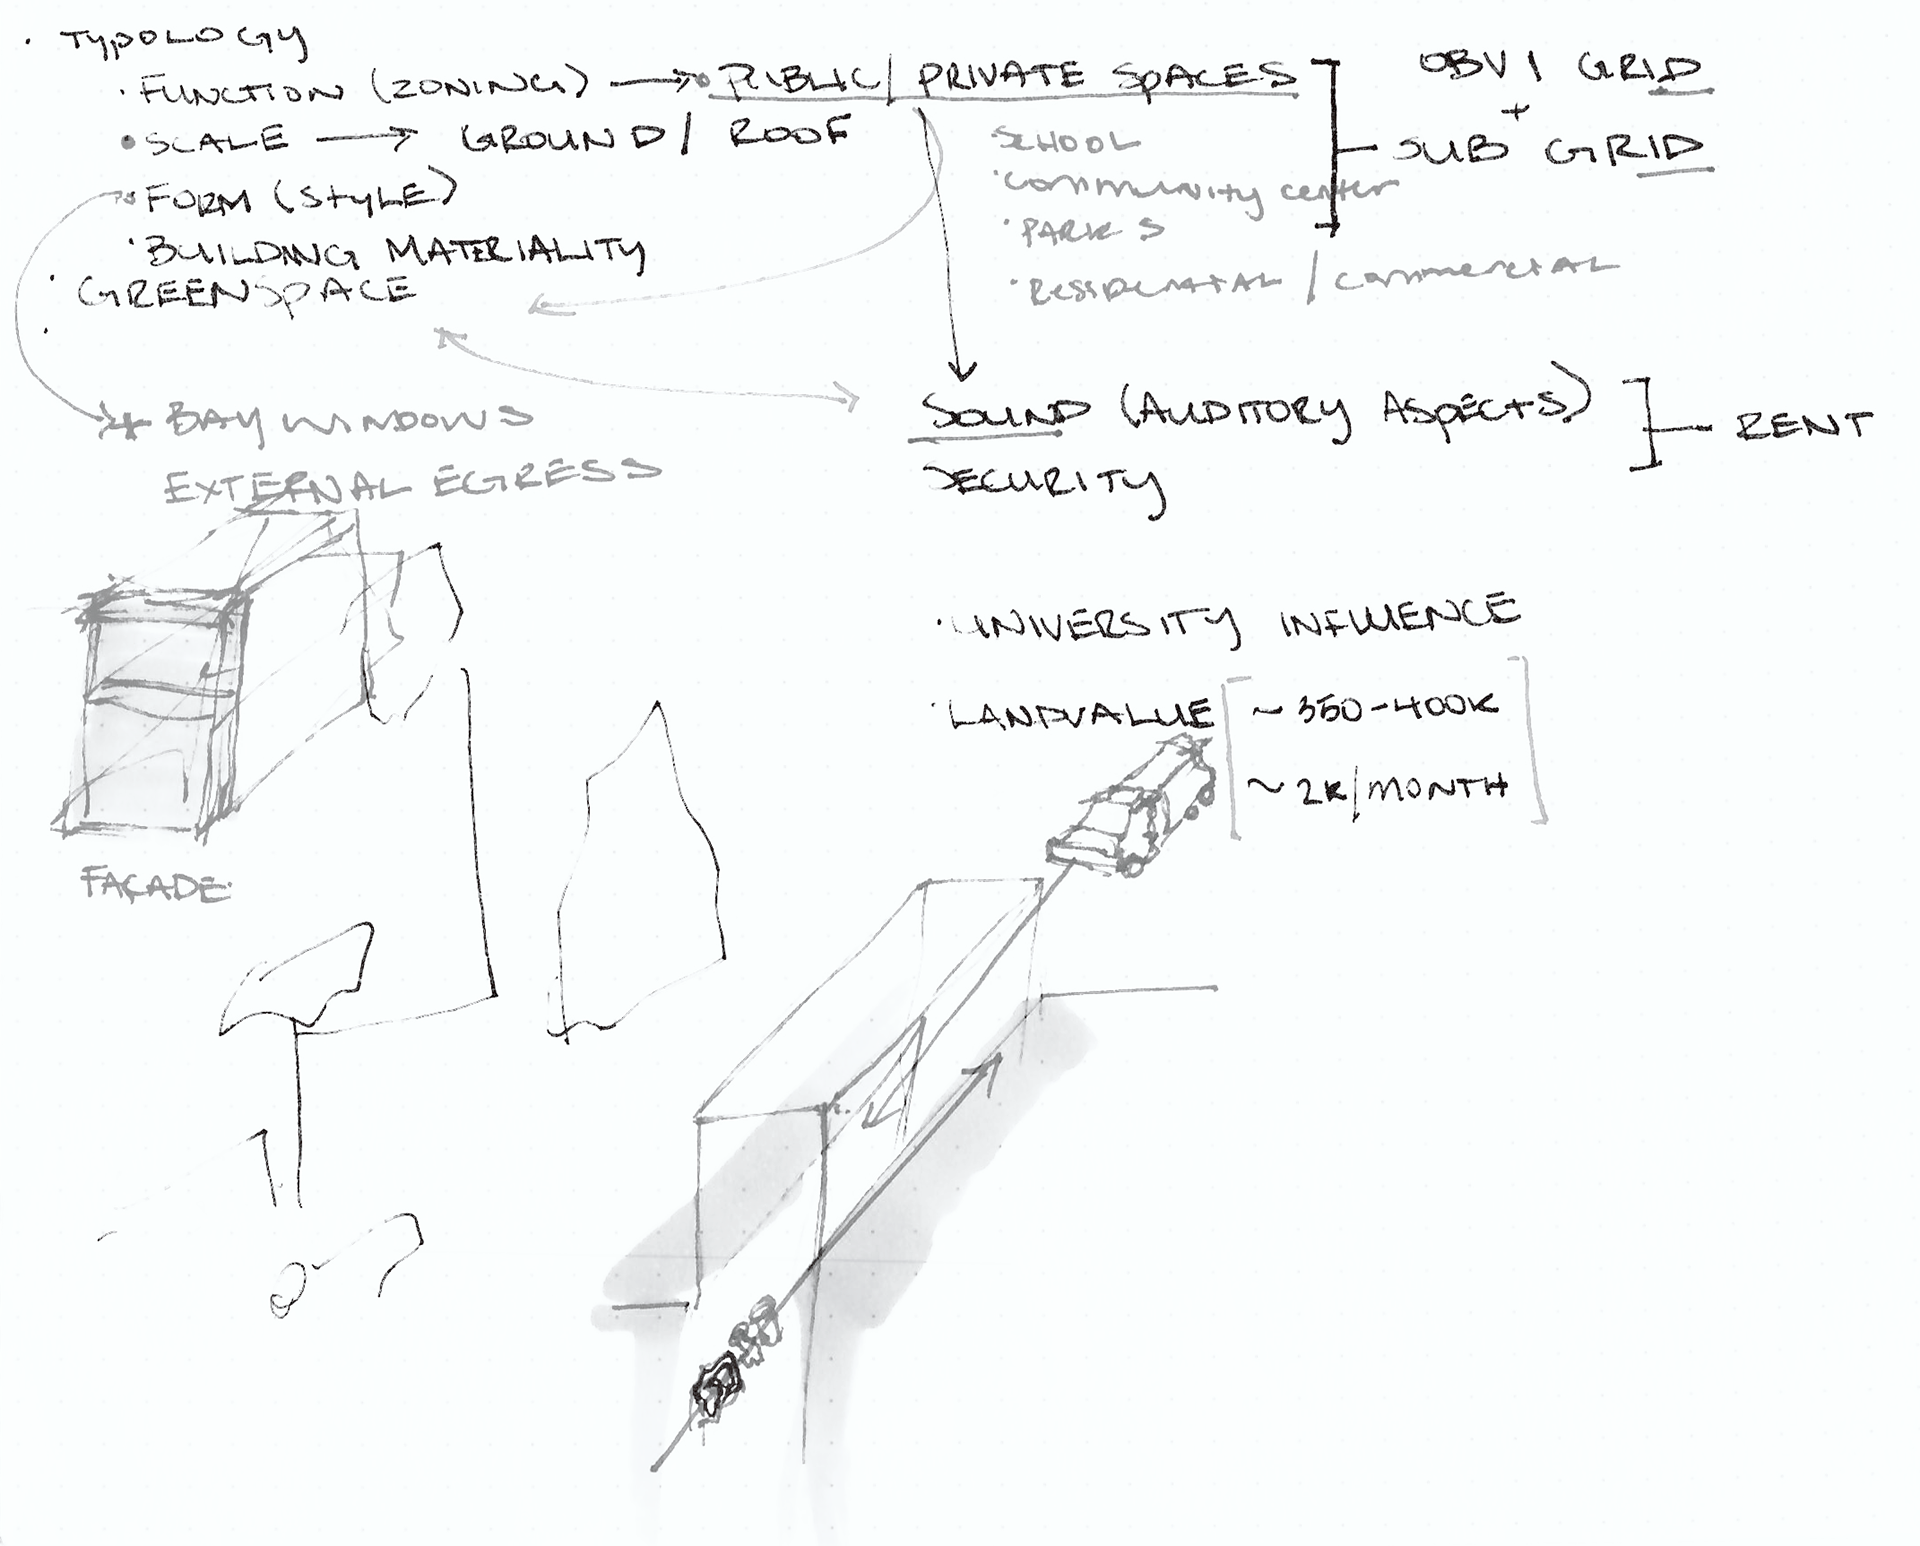 · TYPOLOGY
· FUNCTION (ZONING) → PUBLIC / PRIVATE SPACES
OBVI GRID
+
SUB GRID
• SCALE → GROUND / ROOF
· FORM (STYLE)
· BUILDING MATERIALITY
· GREENSPACE
·
SCHOOL
· COMMUNITY CENTER
· PARKS
· RESSIDENTIAL / COMMERCIAL
* BAY WINDOWS
EXTERNAL EGRESS
SOUND (AUDITORY ASPECTS)
SECURITY
RENT
FAÇADE
· UNIVERSITY INFLUENCE
· LANDVALUE [~ 350-400K
~ 2K/MONTH]